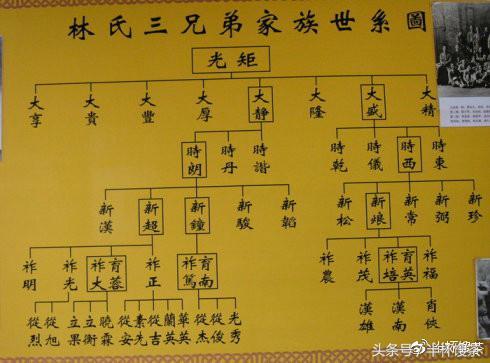 林氏三兄弟家族世系圖
光矩
大享 大貴 大豐 大厚 大靜 大隆 大盛 大精
時朗 時丹 時諧 時乾 時儀 時西 時東
新漢 新超 新鐘 新駿 新韜 新松 新烺 新常 新弼 新珍
祚明 祚光 祚大 育蓉 祚正 祚篤 育南 祚農 祚茂 祚培 育英 祚福
從烈 從旭 立果 立衡 曉霖 從安 素先 從吉 蘭英 華英 從杰 從俊 光秀 漢雄 漢南 肖俠
@半杯馊茶